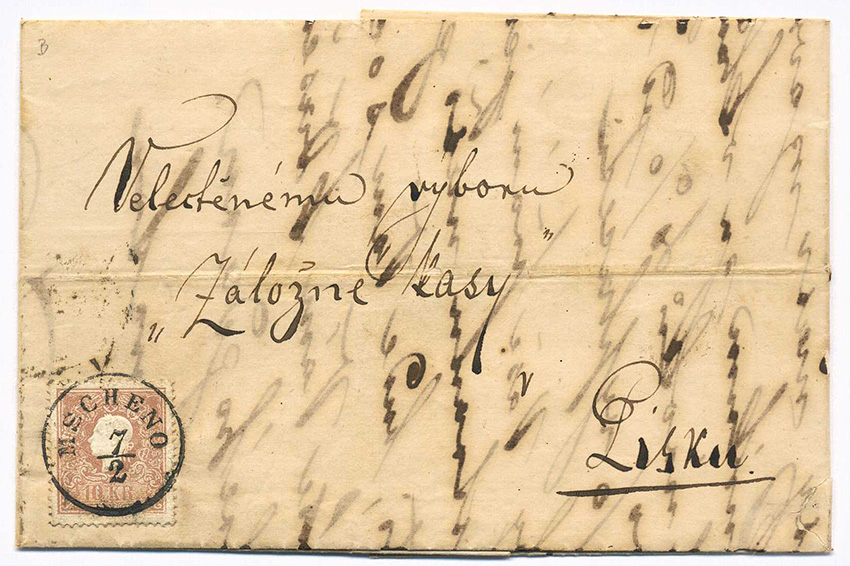 B
Velectěnému výboru
„Záložne kasy"
v
Písku.
MSCHENO
7
2
10 KR